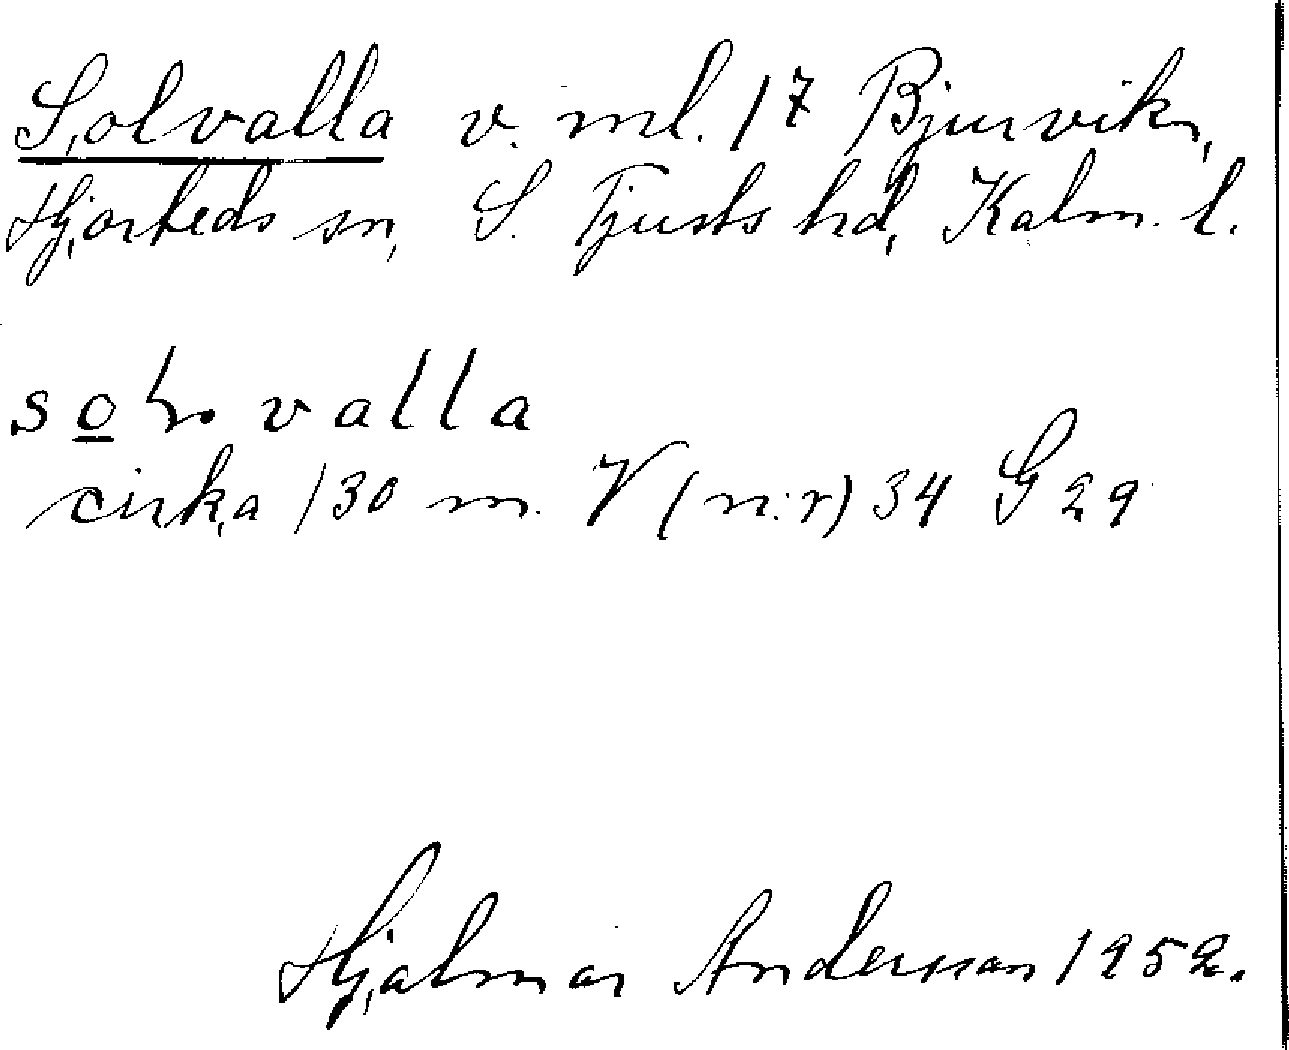 Solvalla v. ml. 17 Bjurvik,
Hjorteds sn, S. Tjusts hd, Kalm. l.
valla
cirka 130 m. V (n:r) 34 G 29
Hjalmar Andersson 1952.